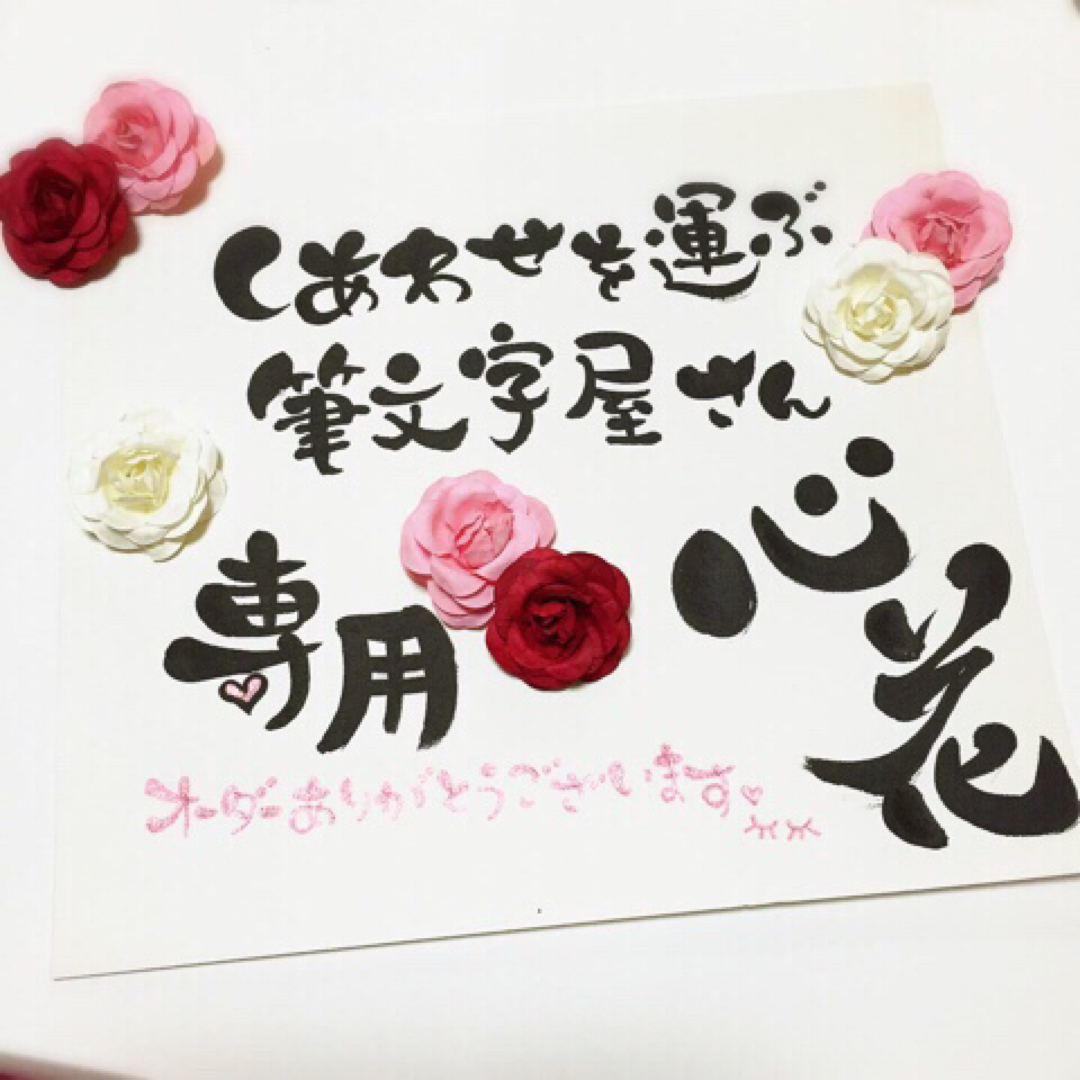 しあわせを運ぶ
筆文字屋さん
心花
専用
オーダーありがとうございます♡